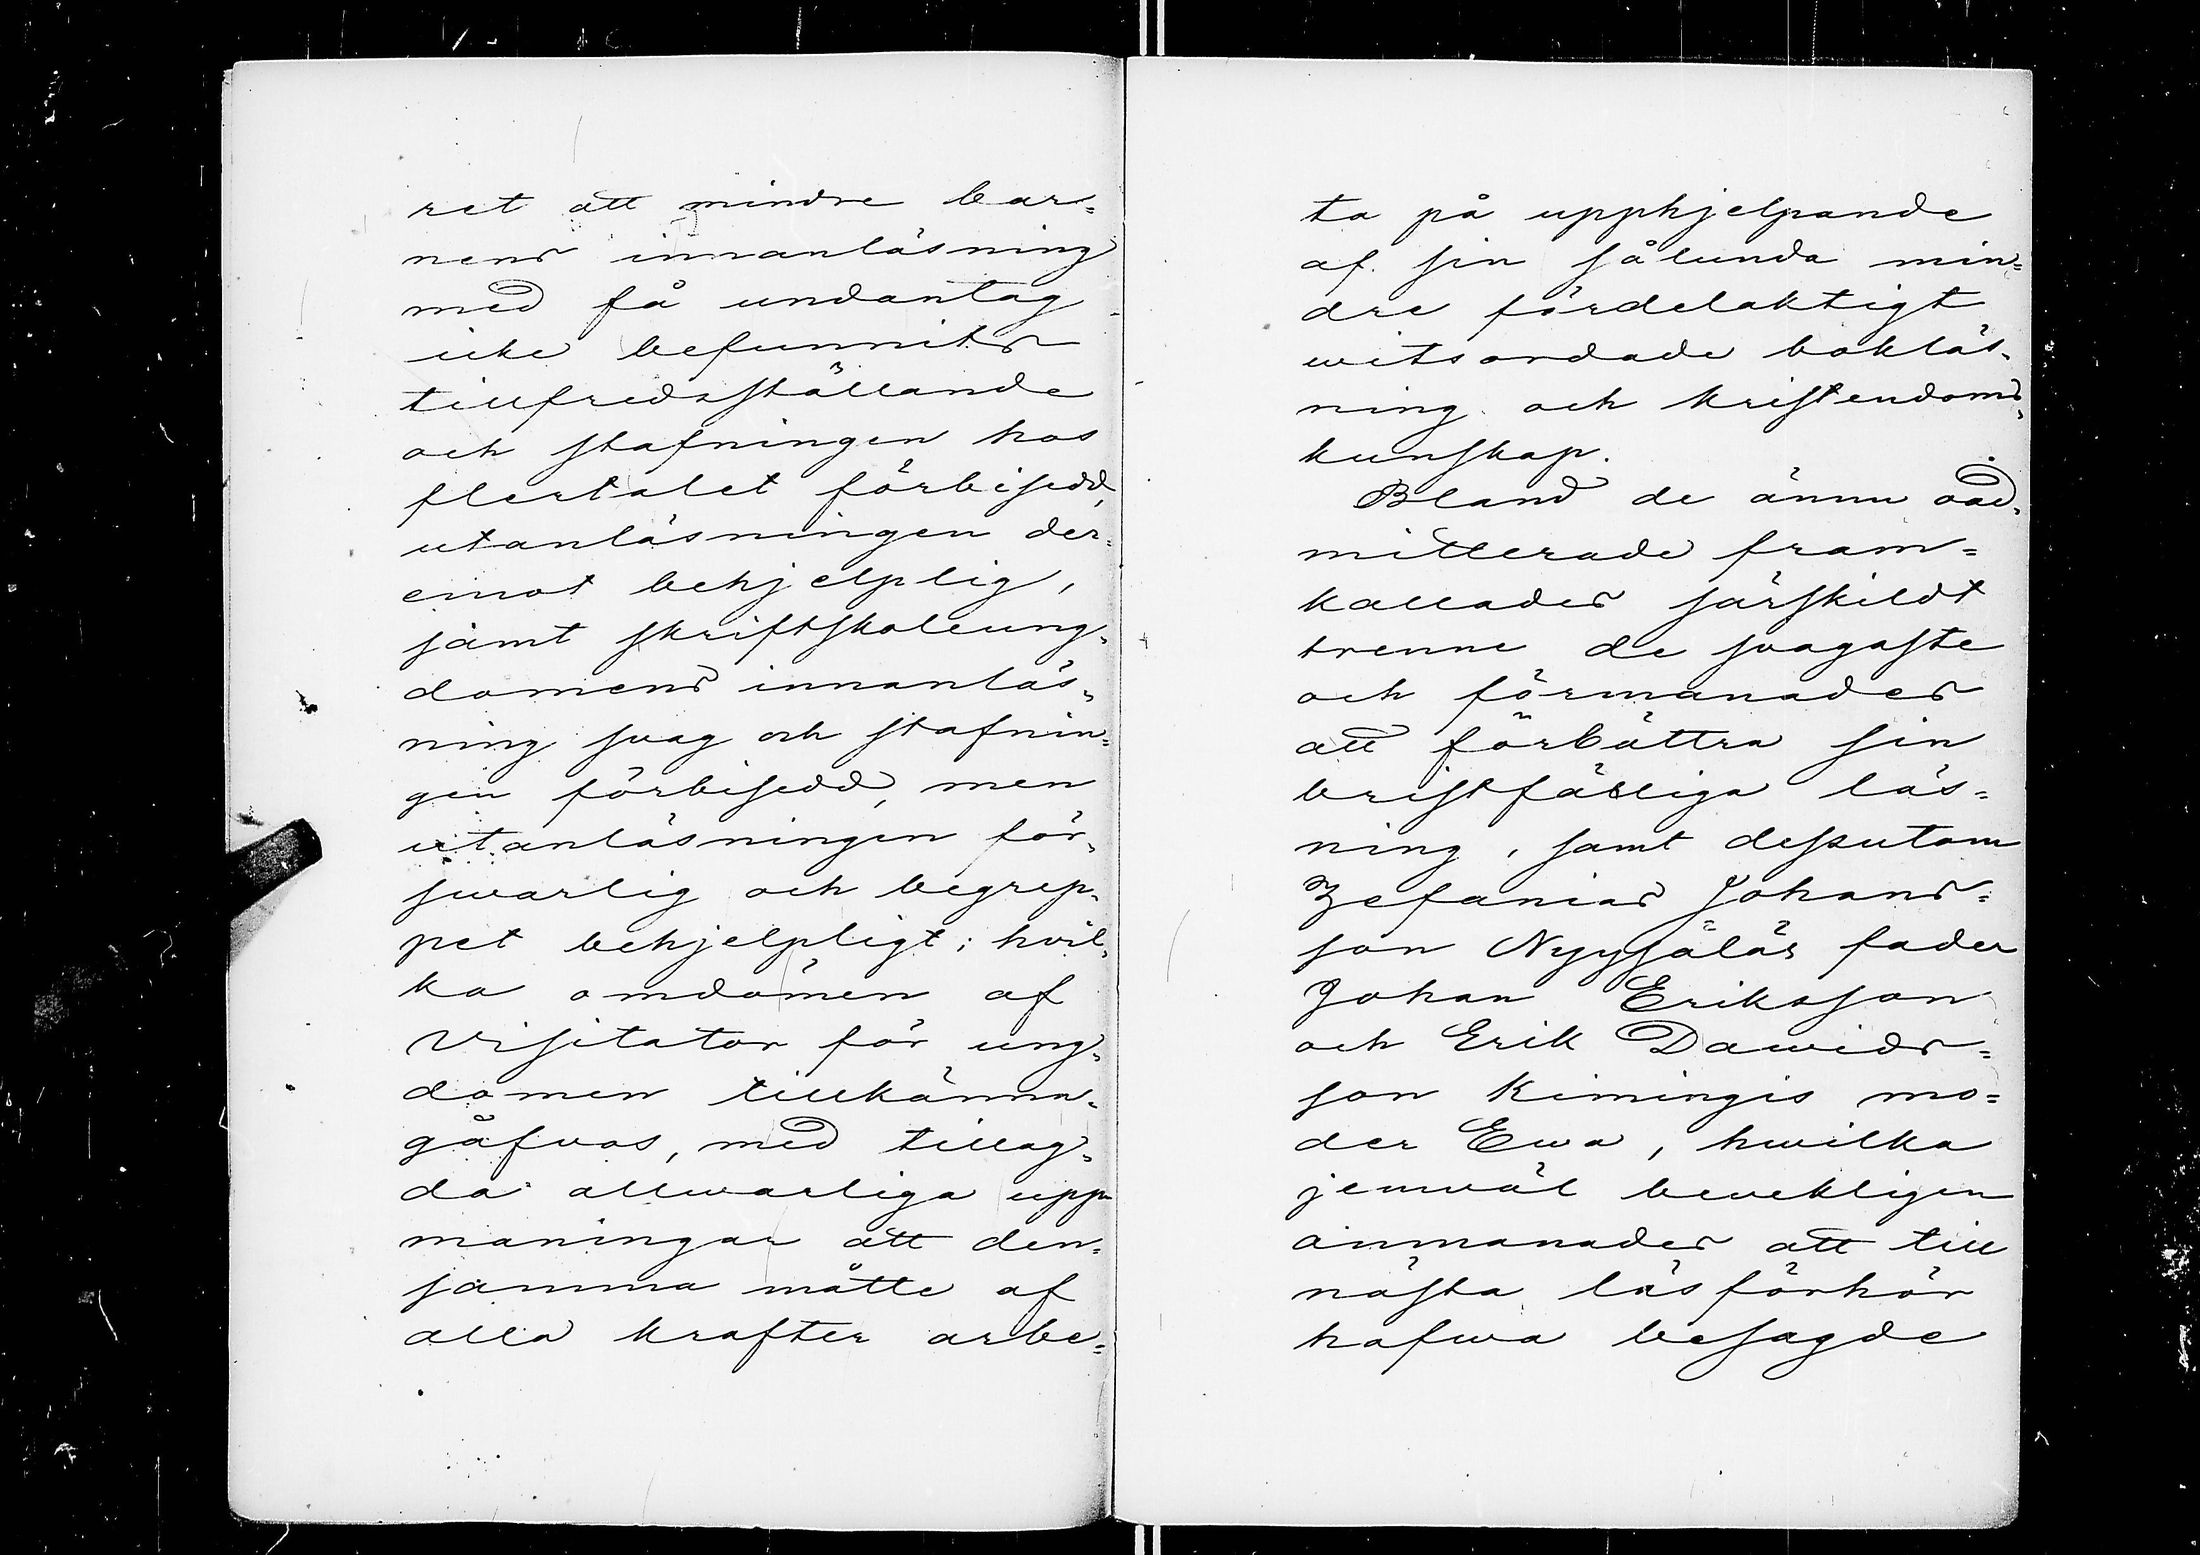 ret att mindre bar=
nens innanläsning
med få undantag
icke befunnits
tillfredsställande
och stafningen hos
flertalet förbisedd,
utanläsningen der=
emot behjelplig,
jämt skriftskoleung=
domens innanläs=
ning svag och stafnin=
gen förbisedd, men
utanläsningen för=
svarlig och begrep=
pet behjelpligt; hvil=
ka omdömen af
Visitator för ung=
domen tillkänna=
gåfvos, med tillag=
da allwarliga upp
maningar att den=
samma måtte af
alla krafter arbe=
ta på upphjelpande
af sin sålunda min=
dre fördelaktigt
witsordade bokläs=
ning och kristendoms=
kunskap.
Bland de ännu oad=
mitterade fram=
kallades särskildt
trenne de svagaste
och förmanades
att förbättra sin
bristfälliga läs=
ning, samt dessutom
Zefanias Johans=
son Nyyssäläs fader
Johan Eriksson
och Erik Dawids=
son Kimingis mo=
der Ewa, hwilka
jemväl bevekligen
anmanades att till
nästa läsförhör
hafwa besagde